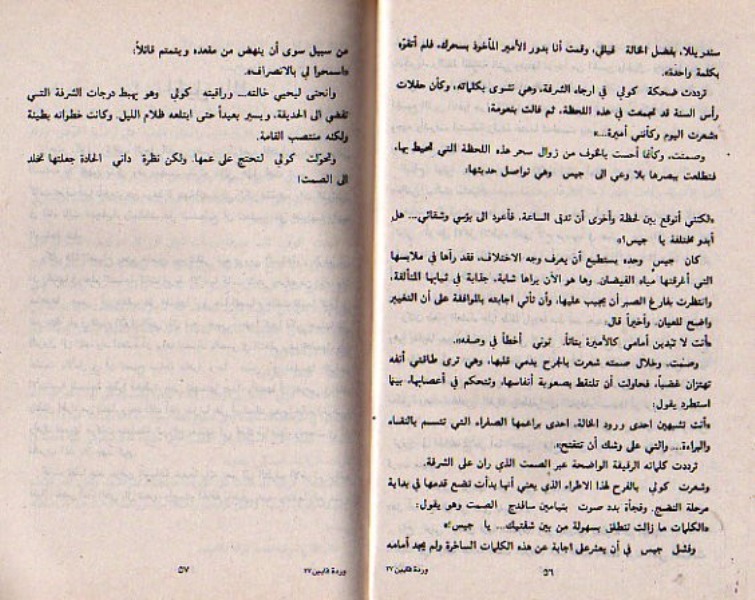 سندريللا، بفضل الخالة فيافي، وقمت أنا بدور الأمير المأخوذ بسحرك، فلم أتفوّه
بكلمة واحدة».
ترددت ضحكة كولي في ارجاء الشرفة، وهي تشوى بكلماته، وكأن حفلات
رأس السنة قد تجمعت في هذه اللحظة، ثم قالت بنعومة:
«شعرت اليوم وكأنني أميرة...»
وصمتت، وكأنما أحست بالخوف من زوال سحر هذه اللحظة التي تحيط بها،
فتطلعت ببصرها بلا وعي الى جيس وهي تواصل حديثها:
«لكنني أتوقع بين لحظة وأخرى أن تدق الساعة، فأعود الى بؤسي وشقائي... هل
أبدو مختلفة يا جيس؟»
كان جيس وحده يستطيع أن يعرف وجه الاختلاف، فقد رآها في ملابسها
التي أغرقتها مياه الفيضان، وها هو الآن يراها شابة، جذابة في ثيابها المتألقة،
وانتظرت بفارغ الصبر أن يجيب عليها، وأن تأتي اجابته بالموافقة على أن التغيير
واضح للعيان، وأخيراً قال:
«أنت لا تبدين أمامي كالأميرة بتاتاً. توني أخطأ في وصفه».
وصمت، وخلال صمته شعرت بالجرح يدمي قلبها، وهي ترى طاقتي أنفه
تهتزان غضباً، فحاولت أن تلتقط بصعوبة أنفاسها، وتتحكم في أعصابها، بينما
استطرد يقول:
«أنت تشبهين احدى ورود الخالة، احدى براعمها الصفراء التي تتسم بالنقاء
والبراءة... والتي على وشك أن تتفتح».
ترددت كلماته الرقيقة الواضحة عبر الصمت الذي ران على الشرفة،
وشعرت كولي بالفرح لهذا الاطراء الذي يعني أنها بدأت تضع قدمها في بداية
مرحلة النضج. وفجأة بدد صوت بنيامين سافدج الصمت وهو يقول:
«الكلمات ما زالت تنطلق بسهولة من بين شفتيك... يا جيس!»
وفشل جيس في أن يعثر على اجابة عن هذه الكلمات الساخرة ولم يجد أمامه
٥٦
وردة قايين ٢٧
من سبيل سوى أن ينهض من مقعده ويتمتم قائلاً:
«اسمحوا لي بالانصراف».
وانحنى ليحيي خالته... وراقبته كولي وهو يهبط درجات الشرفة التي
تفضي الى الحديقة، ويسير بعيداً حتى ابتلعه ظلام الليل. وكانت خطواته بطيئة
ولكنه منتصب القامة.
وتحركت كولي لتحتج على عمها. ولكن نظرة داني الحادة جعلتها تخلد
الى الصمت!
وردة قايين ٢٧
٥٧